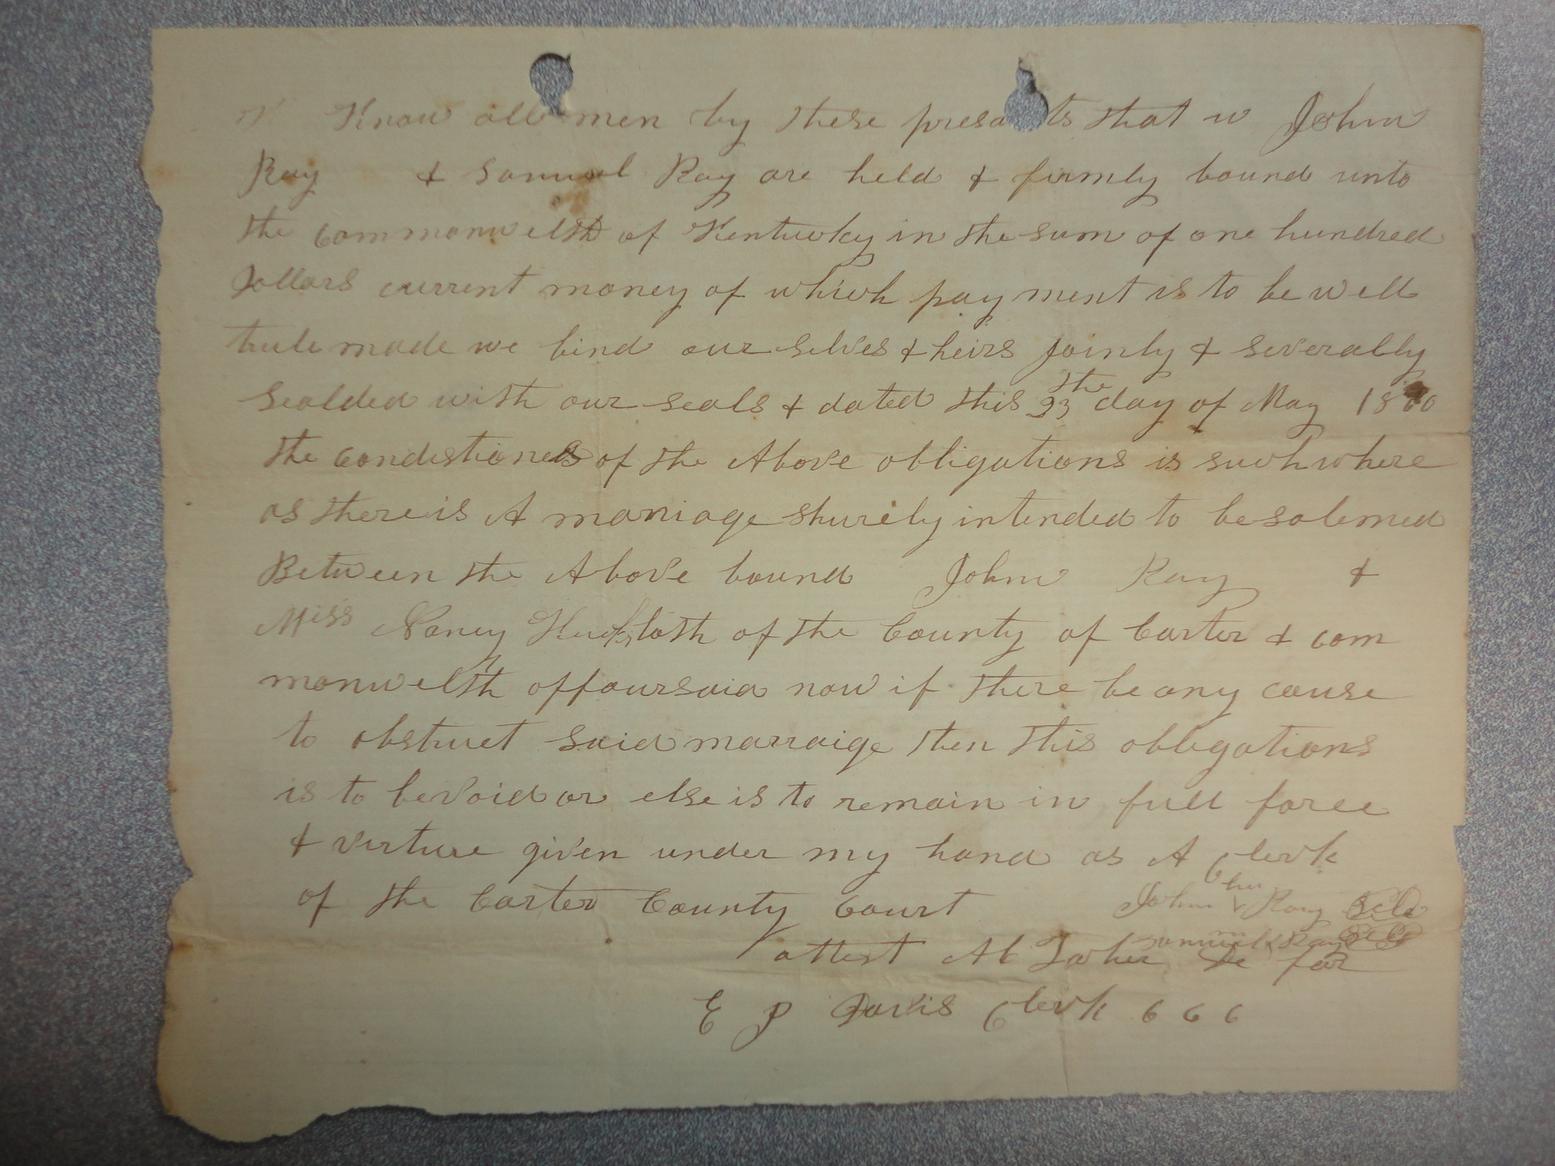 Know all men by these presents that w John
Ray & Samuel Ray are held & firmly bound unto
the Commonwelth of Kentucky in the sum of one hundred
Dollars current money of which payment is to be well
trule made we bind our selves & heirs Joinly & severally
Sealded with our seals & dated this 23 the day of May 1860
the Condistiones of the Above obligations is such where
as there is A marriage shurely intended to be solemed
Between the Above bound John Ray &
Miss Nancy both of the County of Carter & com
monwelth offoursaid now if there be any cause
to obstruct said marraige then this obligations
is to be void or else is to remain in full force
& virture given under my hand as A Clerk
of the Carter County Court John Ray
Samuel Ray
attest for
E P Davis Clerk C C C